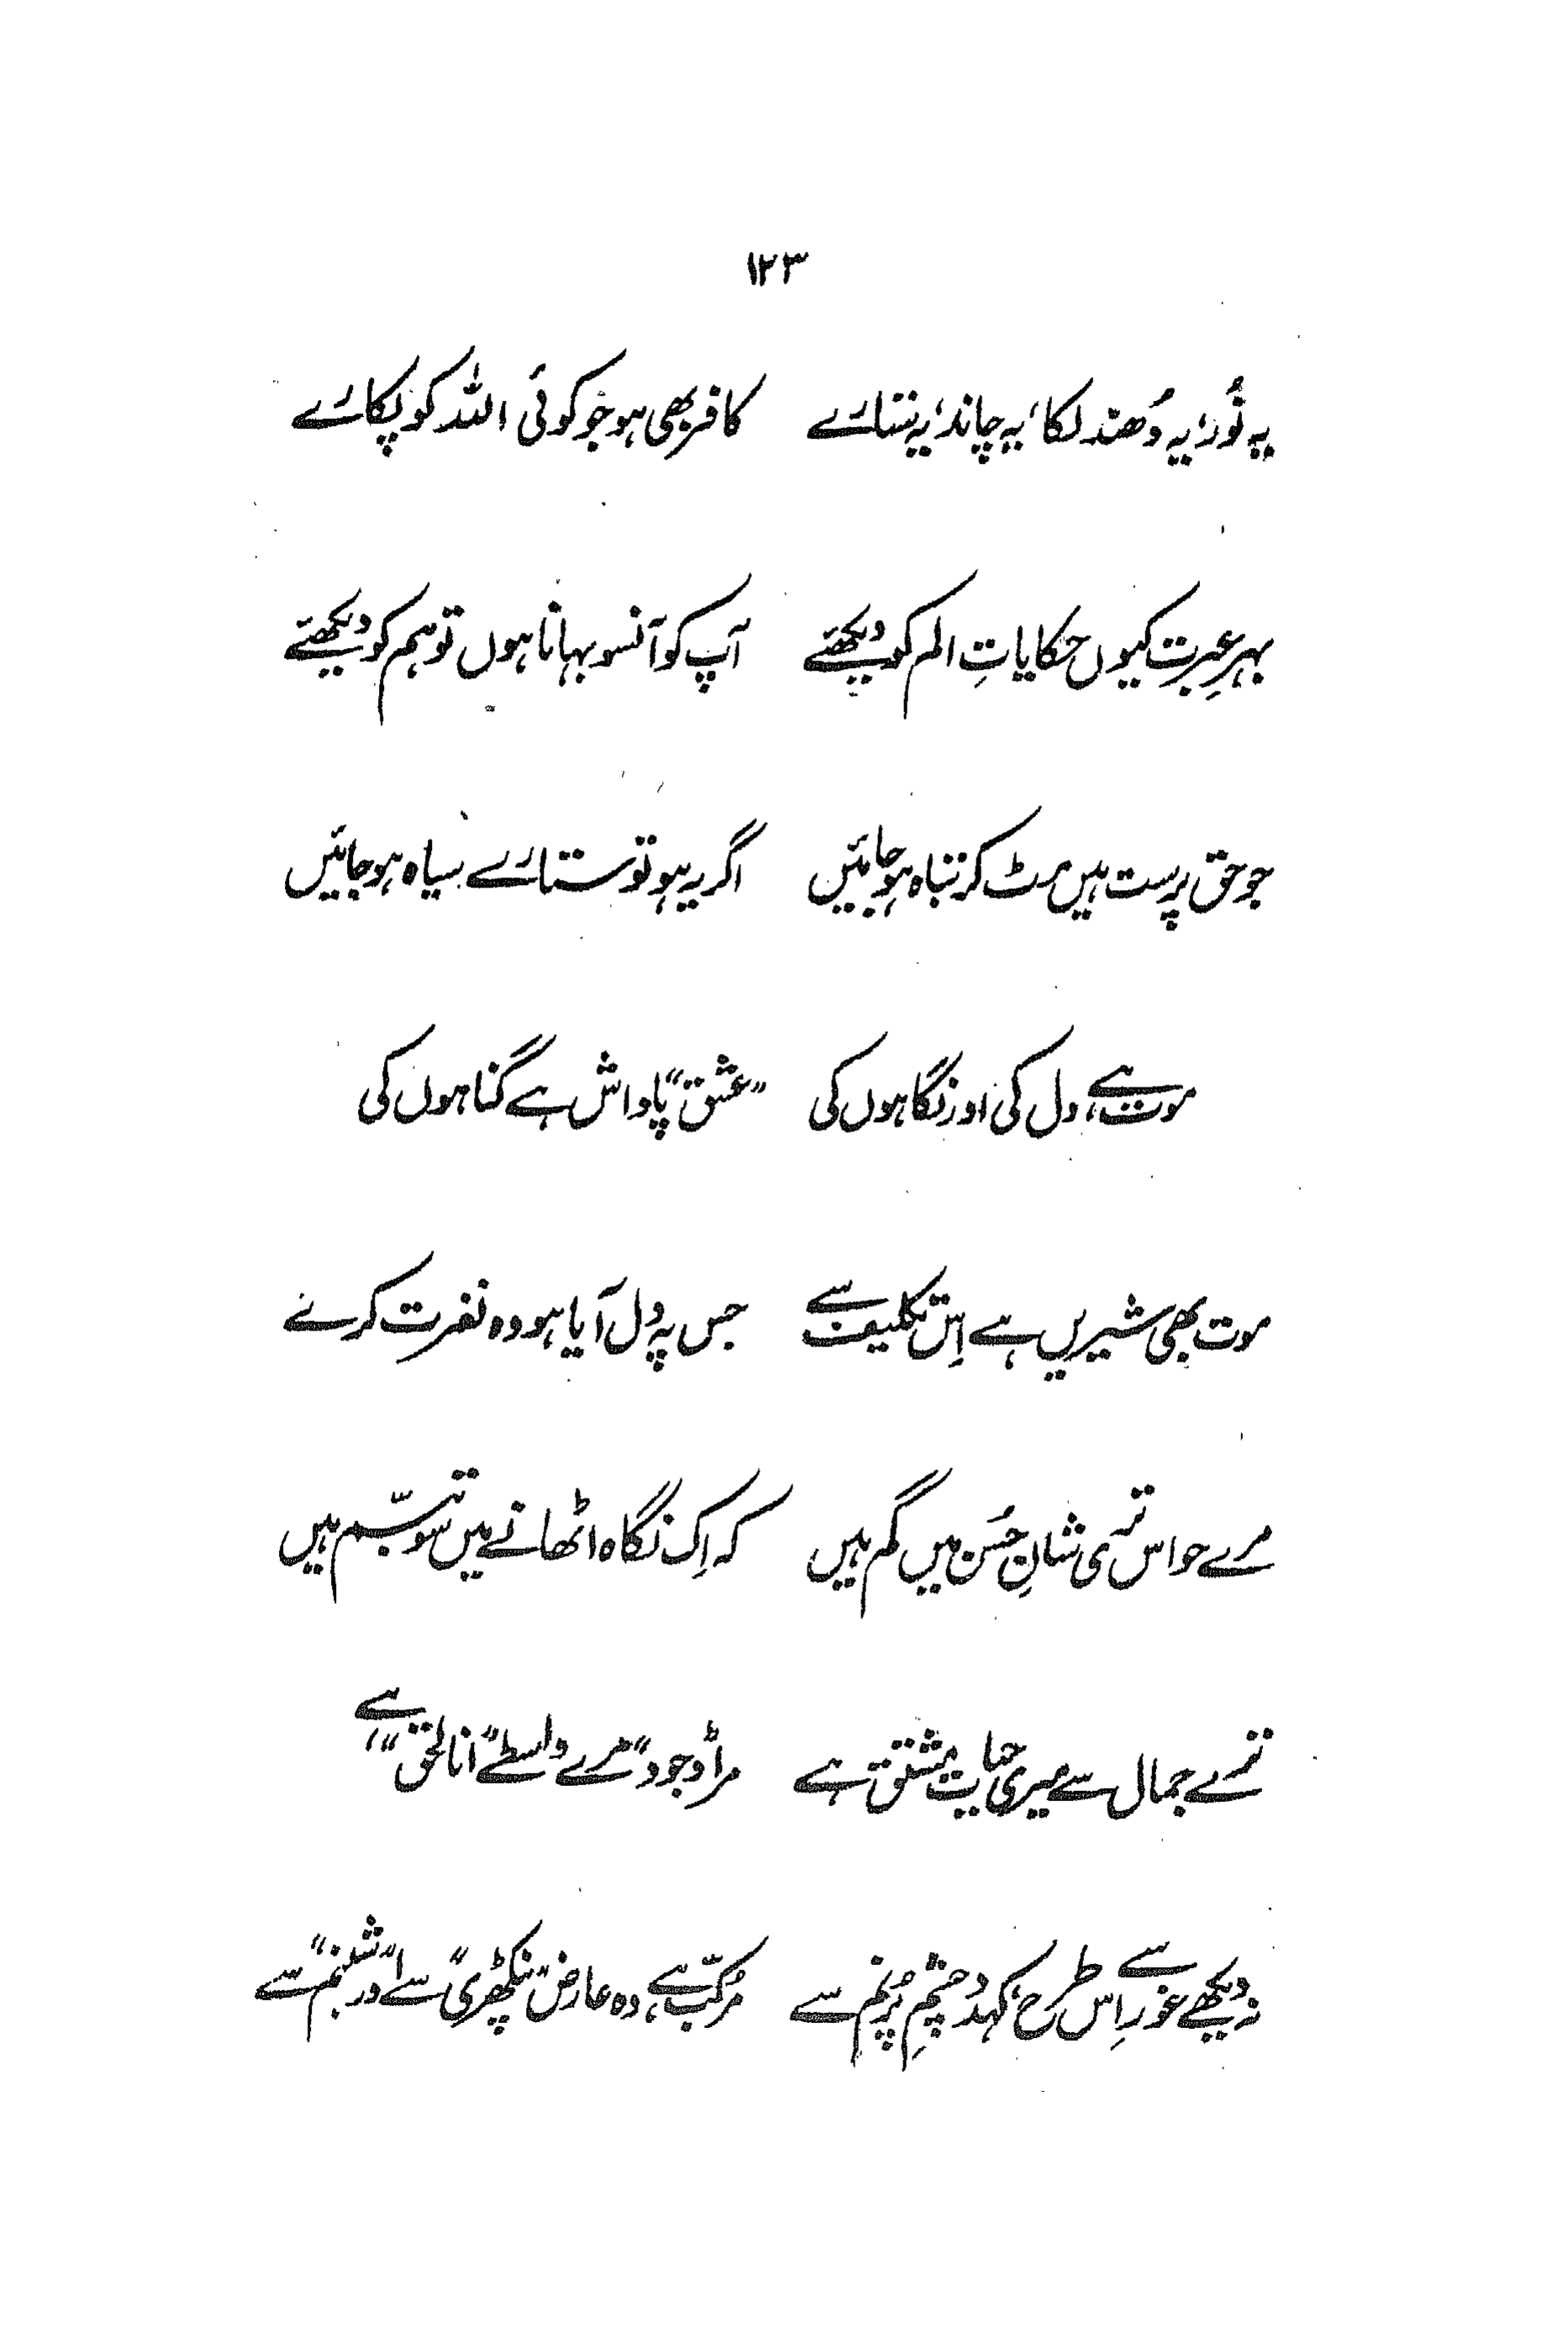 ۱۲۳
یہ نُور، یہ دُھندلکا، یہ چاند، یہ ستارے کافر بھی ہو جو کوئی اللہ کو پکارے
بہرِ عبرت کیوں حکایاتِ الم کو دیکھئے آپ کو آنسو بہانا ہوں تو ہم کو دیکھئے
جو حق پرست ہیں مٹ کر تباہ ہو جائیں اگر یہ ہو تو ستارے سیاہ ہو جائیں
موت ہے، دل کی اور نگاہوں کی ”عشق“ پاداش ہے گناہوں کی
موت بھی شیریں ہے اِس تکلیف سے جس پہ دل آیا ہو وہ نفرت کرے
مرے حواس تری شانِ حُسن میں گم ہیں کہ اِک نگاہ اٹھانے میں سو تبسّم ہیں
ترے جمال سے میری حیات مشتق ہے مرا وجود ”مرے واسطے“ ”انا الحق“ ہے
نہ دیکھے غور سے اِس طرح، کہدو چشمِ پُرنم سے مُرکّب ہے، وہ عارض ”پنکھڑی“ سے اور ”شبنم“ سے